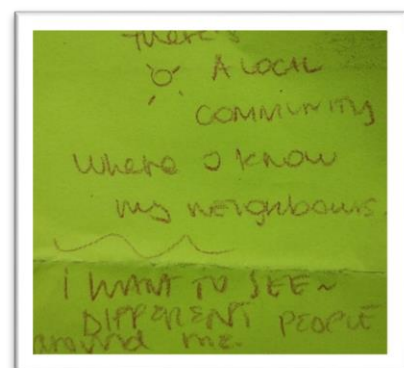 there's
A LOCAL
COMMUNITY
where I know
my neighbours
I WANT TO SEE~
DIFFERENT PEOPLE
around me.